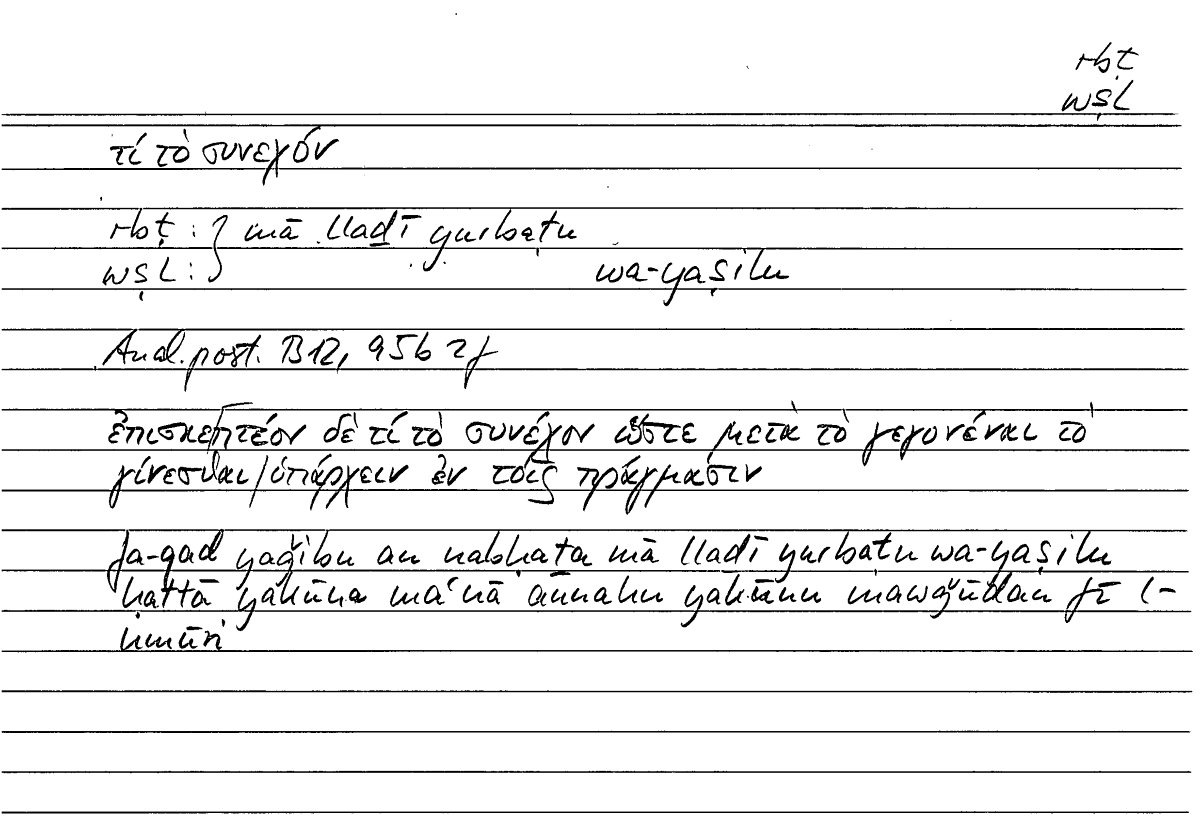 rbṭ
wṣl
τί τὸ συνεχόν
rbṭ : } mā lladī yurbaṭu
wṣl : } wa-yaṣilu
Anal. post. B12, 95b 2f
ἐπισκεπτέον δὲ τί τὸ συνέχον ὥστε μετὰ τὸ γεγονέναι τὸ
γίνεσθαι/ὑπάρχειν ἐν τοῖς πράγμασιν
fa-qad yaǧibu an nabḥata mā lladī yurbaṭu wa-yaṣilu
ḥattā yakūna maʿnā annahu yakūnu mawǧūdan fī l-
umūri